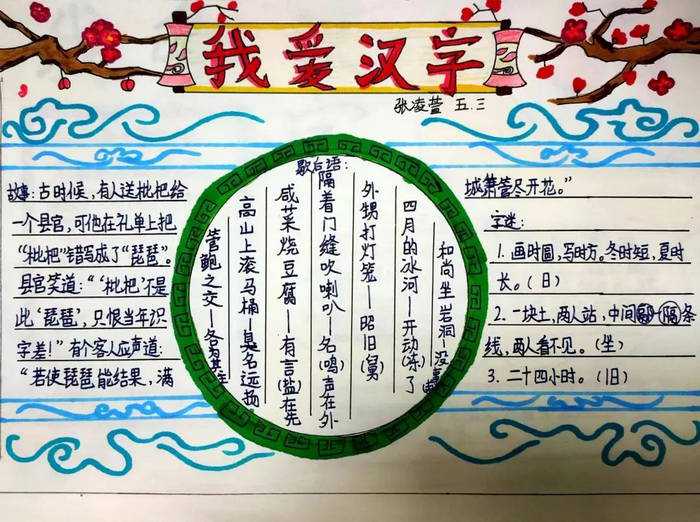 我爱汉字
张凌萱 五.三
故事：古时候，有人送枇杷给
一个县官，可他在礼单上把
“枇杷”错写成了“琵琶”。
县官笑道：“‘枇杷’不是
此‘琵琶’，只恨当年识
字差！”有个客人应声道：
“若使琵琶能结果，满
歇后语：
和尚坐岩洞—没
四月的冰河—开动(冻)了
外甥打灯笼—照旧(舅)
隔着门缝吹喇叭—名(鸣)声在外
咸菜烧豆腐—有言(盐)在先
高山上滚马桶—臭名远扬
管鲍之交—各为其主
城箫管尽开花。”
字谜：
1. 画时圆，写时方。冬时短，夏时
长。（日）
2. 一块土，两人站，中间隔条
线，两人看不见。（坐）
3. 二十四小时。（旧）